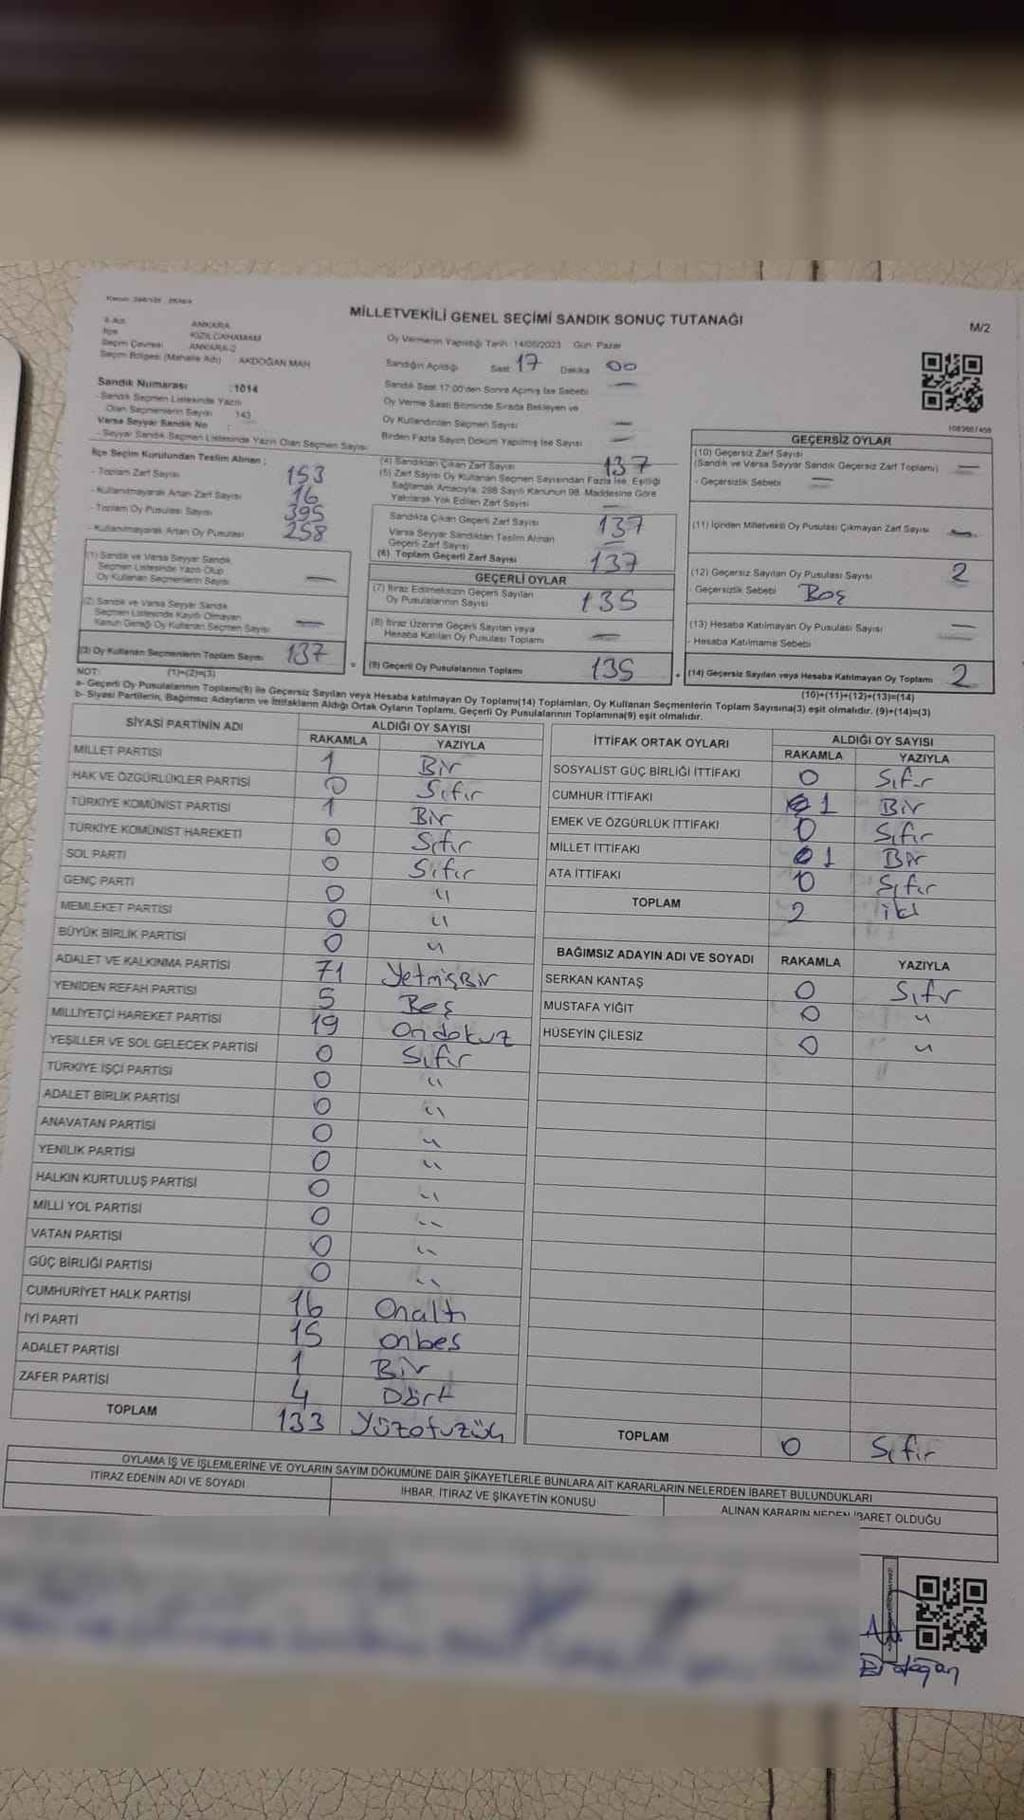 MİLLETVEKİLİ GENEL SEÇİMİ SANDIK SONUÇ TUTANAĞI
M/2
ANKARA
İlçe KIZILCAHAMAM
Seçim Çevresi ANKARA-2
Seçim Bölgesi (Mahalle Adı) AKDOĞAN MAH
Oy Vermenin Yapıldığı Tarih 14/05/2023 Gün Pazar
Sandığın Açıldığı Saat 17 Dakika 00
Sandık Saat 17:00'den Sonra Açılmış İse Sebebi —
Oy Verme Saati Bitiminde Sırada Bekleyen ve
Oy Kullandırılan Seçmen Sayısı —
Birden Fazla Sayım Döküm Yapılmış İse Sayısı —
Sandık Numarası : 1014
- Sandık Seçmen Listesinde Yazılı
Olan Seçmenlerin Sayısı 143
Varsa Seyyar Sandık No :
- Seyyar Sandık Seçmen Listesinde Yazılı Olan Seçmen Sayısı
İlçe Seçim Kurulundan Teslim Alınan :
- Toplam Zarf Sayısı 153
- Kullanılmayarak Artan Zarf Sayısı 16
- Toplam Oy Pusulası Sayısı 395
- Kullanılmayarak Artan Oy Pusulası 258
(1) Sandık ve Varsa Seyyar Sandık
Seçmen Listesinde Yazılı Olup
Oy Kullanan Seçmenlerin Sayısı —
(2) Sandık ve Varsa Seyyar Sandık
Seçmen Listesinde Kayıtlı Olmayan
Kanun Gereği Oy Kullanan Seçmen Sayısı —
(3) Oy Kullanan Seçmenlerin Toplam Sayısı 137
(1)+(2)=(3)
(4) Sandıktan Çıkan Zarf Sayısı 137
(5) Zarf Sayısı Oy Kullanan Seçmen Sayısından Fazla İse, Eşitliği
Sağlamak Amacıyla, 298 Sayılı Kanunun 98. Maddesine Göre
Yakılarak Yok Edilen Zarf Sayısı —
Sandıkta Çıkan Geçerli Zarf Sayısı 137
Varsa Seyyar Sandıktan Teslim Alınan
Geçerli Zarf Sayısı —
(6) Toplam Geçerli Zarf Sayısı 137
GEÇERLİ OYLAR
(7) İtiraz Edilmeksizin Geçerli Sayılan
Oy Pusulalarının Sayısı 135
(8) İtiraz Üzerine Geçerli Sayılan veya
Hesaba Katılan Oy Pusulası Toplamı —
(9) Geçerli Oy Pusulalarının Toplamı 135
1083687458
GEÇERSİZ OYLAR
(10) Geçersiz Zarf Sayısı
(Sandık ve Varsa Seyyar Sandık Geçersiz Zarf Toplamı) —
- Geçersizlik Sebebi —
(11) İçinden Milletvekili Oy Pusulası Çıkmayan Zarf Sayısı —
(12) Geçersiz Sayılan Oy Pusulası Sayısı 2
- Geçersizlik Sebebi Boş
(13) Hesaba Katılmayan Oy Pusulası Sayısı —
- Hesaba Katılmama Sebebi
(14) Geçersiz Sayılan veya Hesaba Katılmayan Oy Toplamı 2
(10)+(11)+(12)+(13)=(14)
NOT:
a- Geçerli Oy Pusulalarının Toplamı(9) ile Geçersiz Sayılan veya Hesaba katılmayan Oy Toplamı(14) Toplamları, Oy Kullanan Seçmenlerin Toplam Sayısına(3) eşit olmalıdır. (9)+(14)=(3)
b- Siyasi Partilerin, Bağımsız Adayların ve İttifakların Aldığı Ortak Oyların Toplamı, Geçerli Oy Pusulalarının Toplamına(9) eşit olmalıdır.
SİYASİ PARTİNİN ADI ALDIĞI OY SAYISI
RAKAMLA YAZIYLA
MİLLET PARTİSİ 1 Bir
HAK VE ÖZGÜRLÜKLER PARTİSİ 0 Sıfır
TÜRKİYE KOMÜNİST PARTİSİ 1 Bir
TÜRKİYE KOMÜNİST HAREKETİ 0 Sıfır
SOL PARTİ 0 Sıfır
GENÇ PARTİ 0 "
MEMLEKET PARTİSİ 0 "
BÜYÜK BİRLİK PARTİSİ 0 "
ADALET VE KALKINMA PARTİSİ 71 YetmişBir
YENİDEN REFAH PARTİSİ 5 Beş
MİLLİYETÇİ HAREKET PARTİSİ 19 Ondokuz
YEŞİLLER VE SOL GELECEK PARTİSİ 0 Sıfır
TÜRKİYE İŞÇİ PARTİSİ 0 "
ADALET BİRLİK PARTİSİ 0 "
ANAVATAN PARTİSİ 0 "
YENİLİK PARTİSİ 0 "
HALKIN KURTULUŞ PARTİSİ 0 "
MİLLİ YOL PARTİSİ 0 "
VATAN PARTİSİ 0 "
GÜÇ BİRLİĞİ PARTİSİ 0 "
CUMHURİYET HALK PARTİSİ 16 Onaltı
İYİ PARTİ 15 onbeş
ADALET PARTİSİ 1 Bir
ZAFER PARTİSİ 4 Dört
TOPLAM 133 Yüzotuzüç
İTTİFAK ORTAK OYLARI ALDIĞI OY SAYISI
RAKAMLA YAZIYLA
SOSYALİST GÜÇ BİRLİĞİ İTTİFAKI 0 Sıfır
CUMHUR İTTİFAKI 1 Bir
EMEK VE ÖZGÜRLÜK İTTİFAKI 0 Sıfır
MİLLET İTTİFAKI 1 Bir
ATA İTTİFAKI 0 Sıfır
TOPLAM 2 iki
BAĞIMSIZ ADAYIN ADI VE SOYADI RAKAMLA YAZIYLA
SERKAN KANTAŞ 0 Sıfır
MUSTAFA YİĞİT 0 "
HÜSEYİN ÇİLESİZ 0 "
TOPLAM 0 Sıfır
OYLAMA İŞ VE İŞLEMLERİNE VE OYLARIN SAYIM DÖKÜMÜNE DAİR ŞİKAYETLERLE BUNLARA AİT KARARLARIN NELERDEN İBARET BULUNDUKLARI
İTİRAZ EDENİN ADI VE SOYADI
İHBAR, İTİRAZ VE ŞİKAYETİN KONUSU
ALINAN KARARIN NEDEN İBARET OLDUĞU
Erdoğan